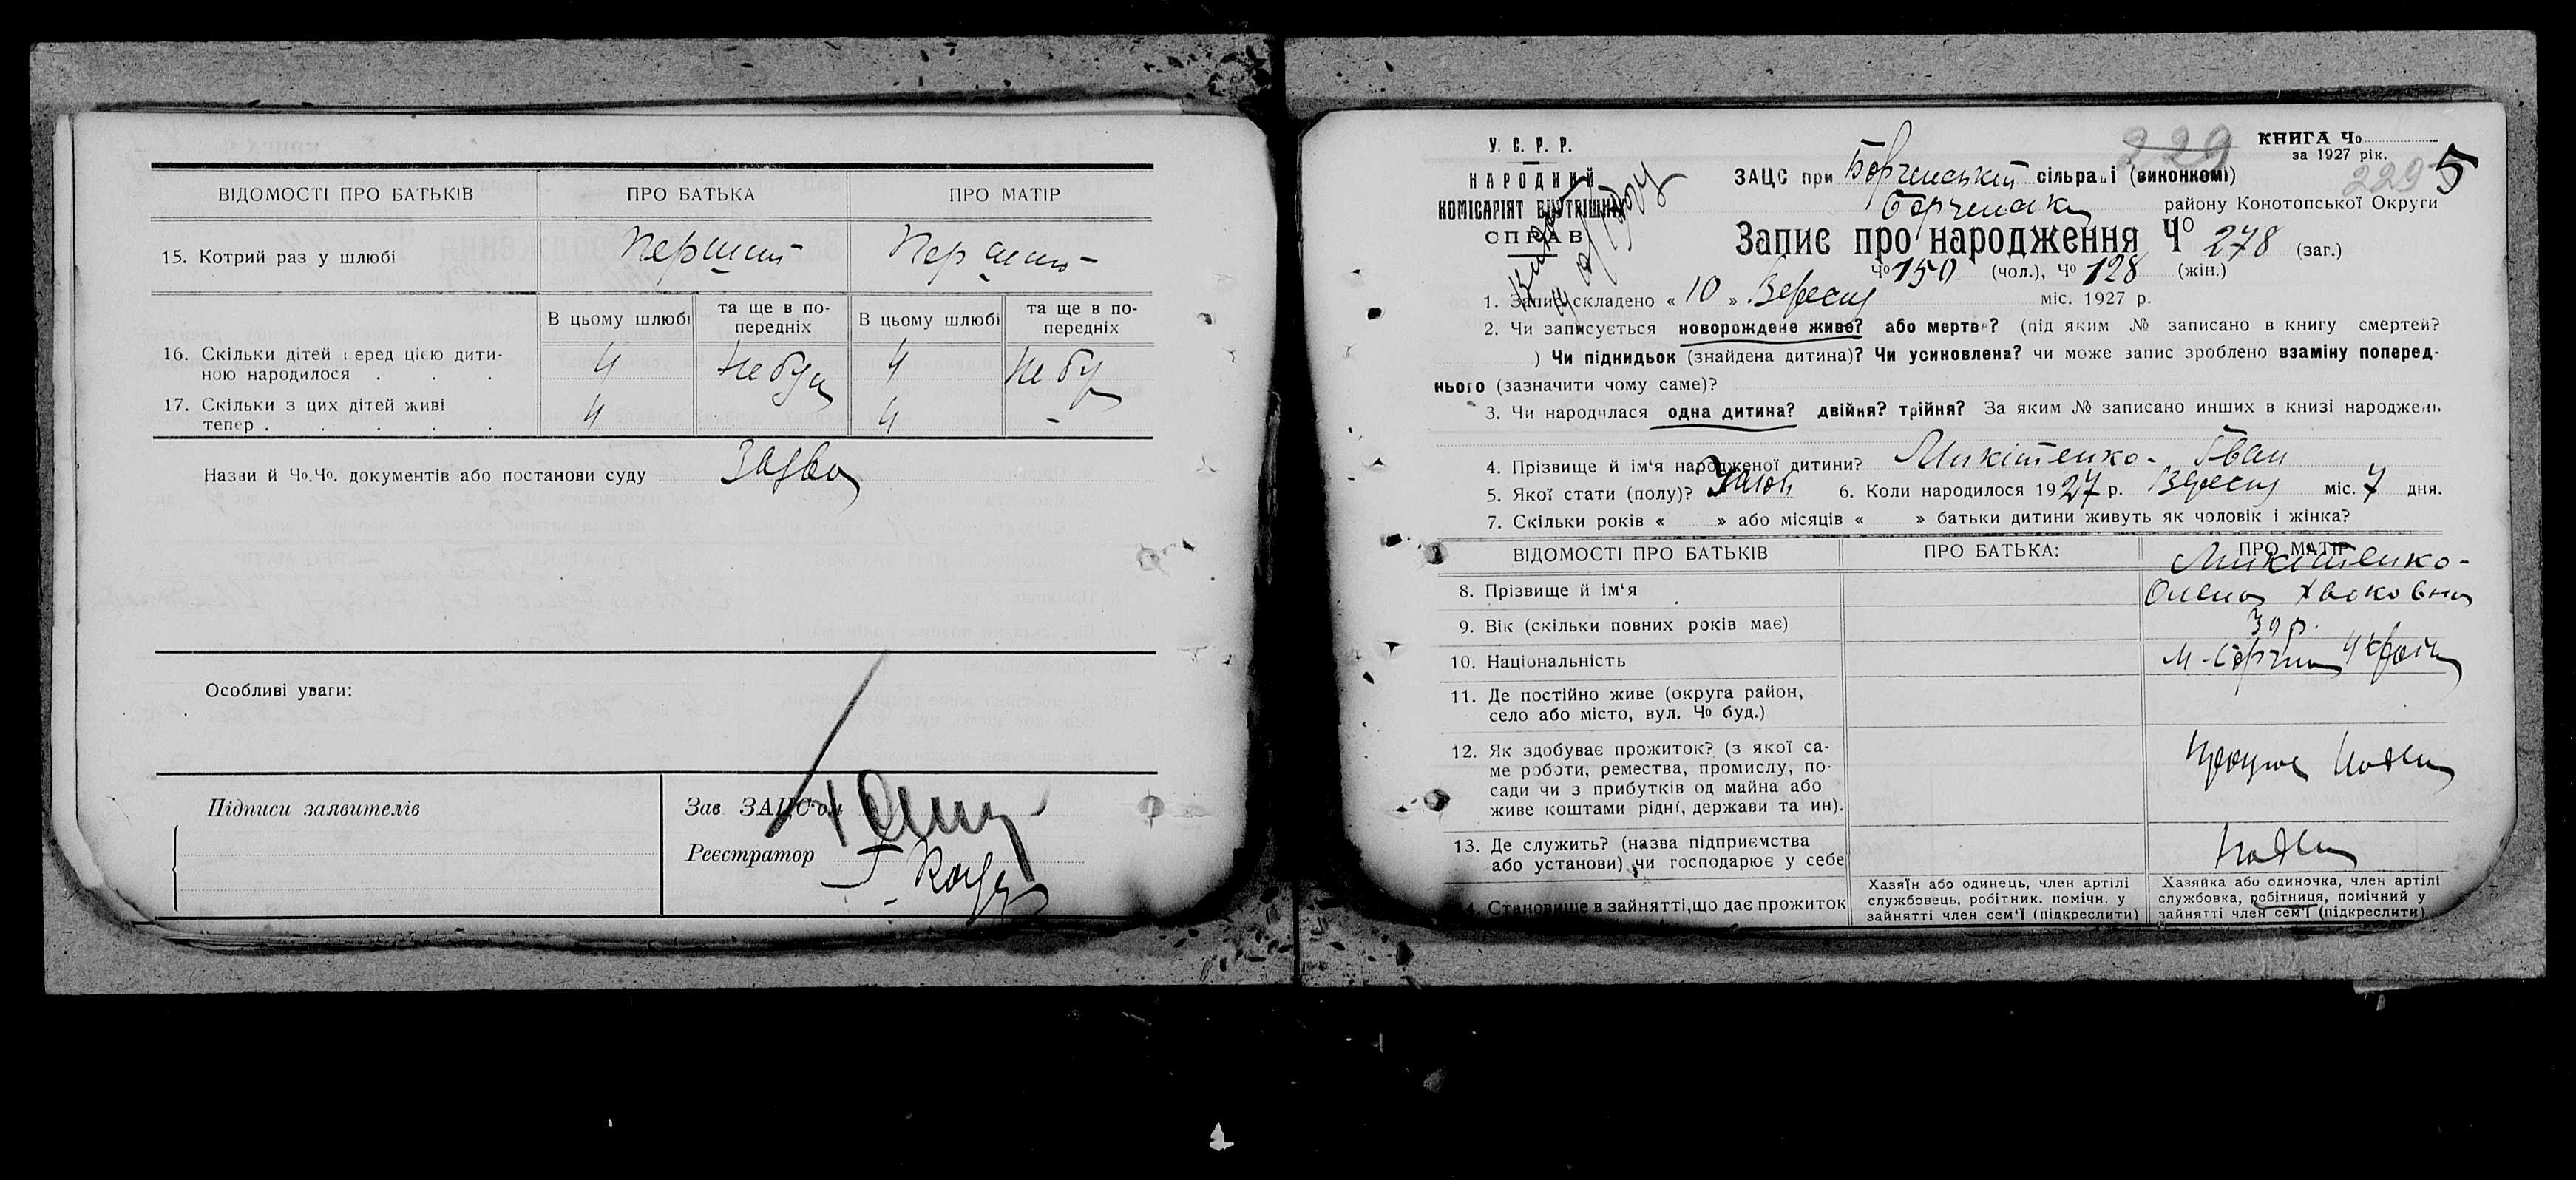 ВІДОМОСТІ ПРО БАТЬКІВ ПРО БАТЬКА ПРО МАТІР
15. Котрий раз у шлюбі Перший Перший
В цьому шлюбі та ще в по-передніх В цьому шлюбі та ще в по-передніх
16. Скільки дітей перед цією дити-
ною народилося . . . 4 4
17. Скільки з цих дітей живі
тепер . . . . . 4 4 -
Назви й Чо.Чо. документів або постанови суду Заява
Особливі уваги:
Підписи заявителів
Зав ЗАЦС'ом
Реєстратор
У. С. Р. Р.
НАРОДНИЙ
КОМІСАРІЯТ ВНУТРІШНІХ
СПРАВ
229
КНИГА Чо
за 1927 рік.
229 5
ЗАЦС при сільраді (виконкомі)
району Конотопської Округи
Запис про народження Чо 278 (заг.)
Чо 150 (чол.), Чо 128 (жін.)
1. Запис складено « 10 » Вересня міс. 1927 р.
2. Чи записується новорождене живе? або мертве? (під яким № записано в книгу смертей?
) Чи підкидьок (знайдена дитина)? Чи усиновлена? чи може запис зроблено взаміну поперед-
нього (зазначити чому саме)?
3. Чи народилася одна дитина? двійня? трійня? За яким № записано инших в книзі народжень
4. Прізвище й ім'я народженої дитини? Микітенко - Іван
5. Якої стати (полу)? 6. Коли народилося 1927 р. Вересня міс. 7 дня.
7. Скільки років « » або місяців « » батьки дитини живуть як чоловік і жінка?
ВІДОМОСТІ ПРО БАТЬКІВ ПРО БАТЬКА: ПРО МАТІР
Микітенко -
8. Прізвище й ім'я Олена
9. Вік (скільки повних років має) 30 р.
10. Національність
11. Де постійно живе (округа район,
село або місто, вул. Чо буд.)
12. Як здобуває прожиток? (з якої са-
ме роботи, ремества, промислу, по-
сади чи з прибутків од майна або
живе коштами рідні, держави та ин).
13. Де служить? (назва підприємства
або установи) чи господарює у себе
14. Становище в зайнятті,що дає прожиток
Хазяїн або одинець, член артілі
службовець, робітник. помічн. у
зайнятті член сем'ї (підкреслити)
Хазяйка або одиночка, член артілі
службовка, робітниця, помічний у
зайнятті член сем'ї (підкреслити)